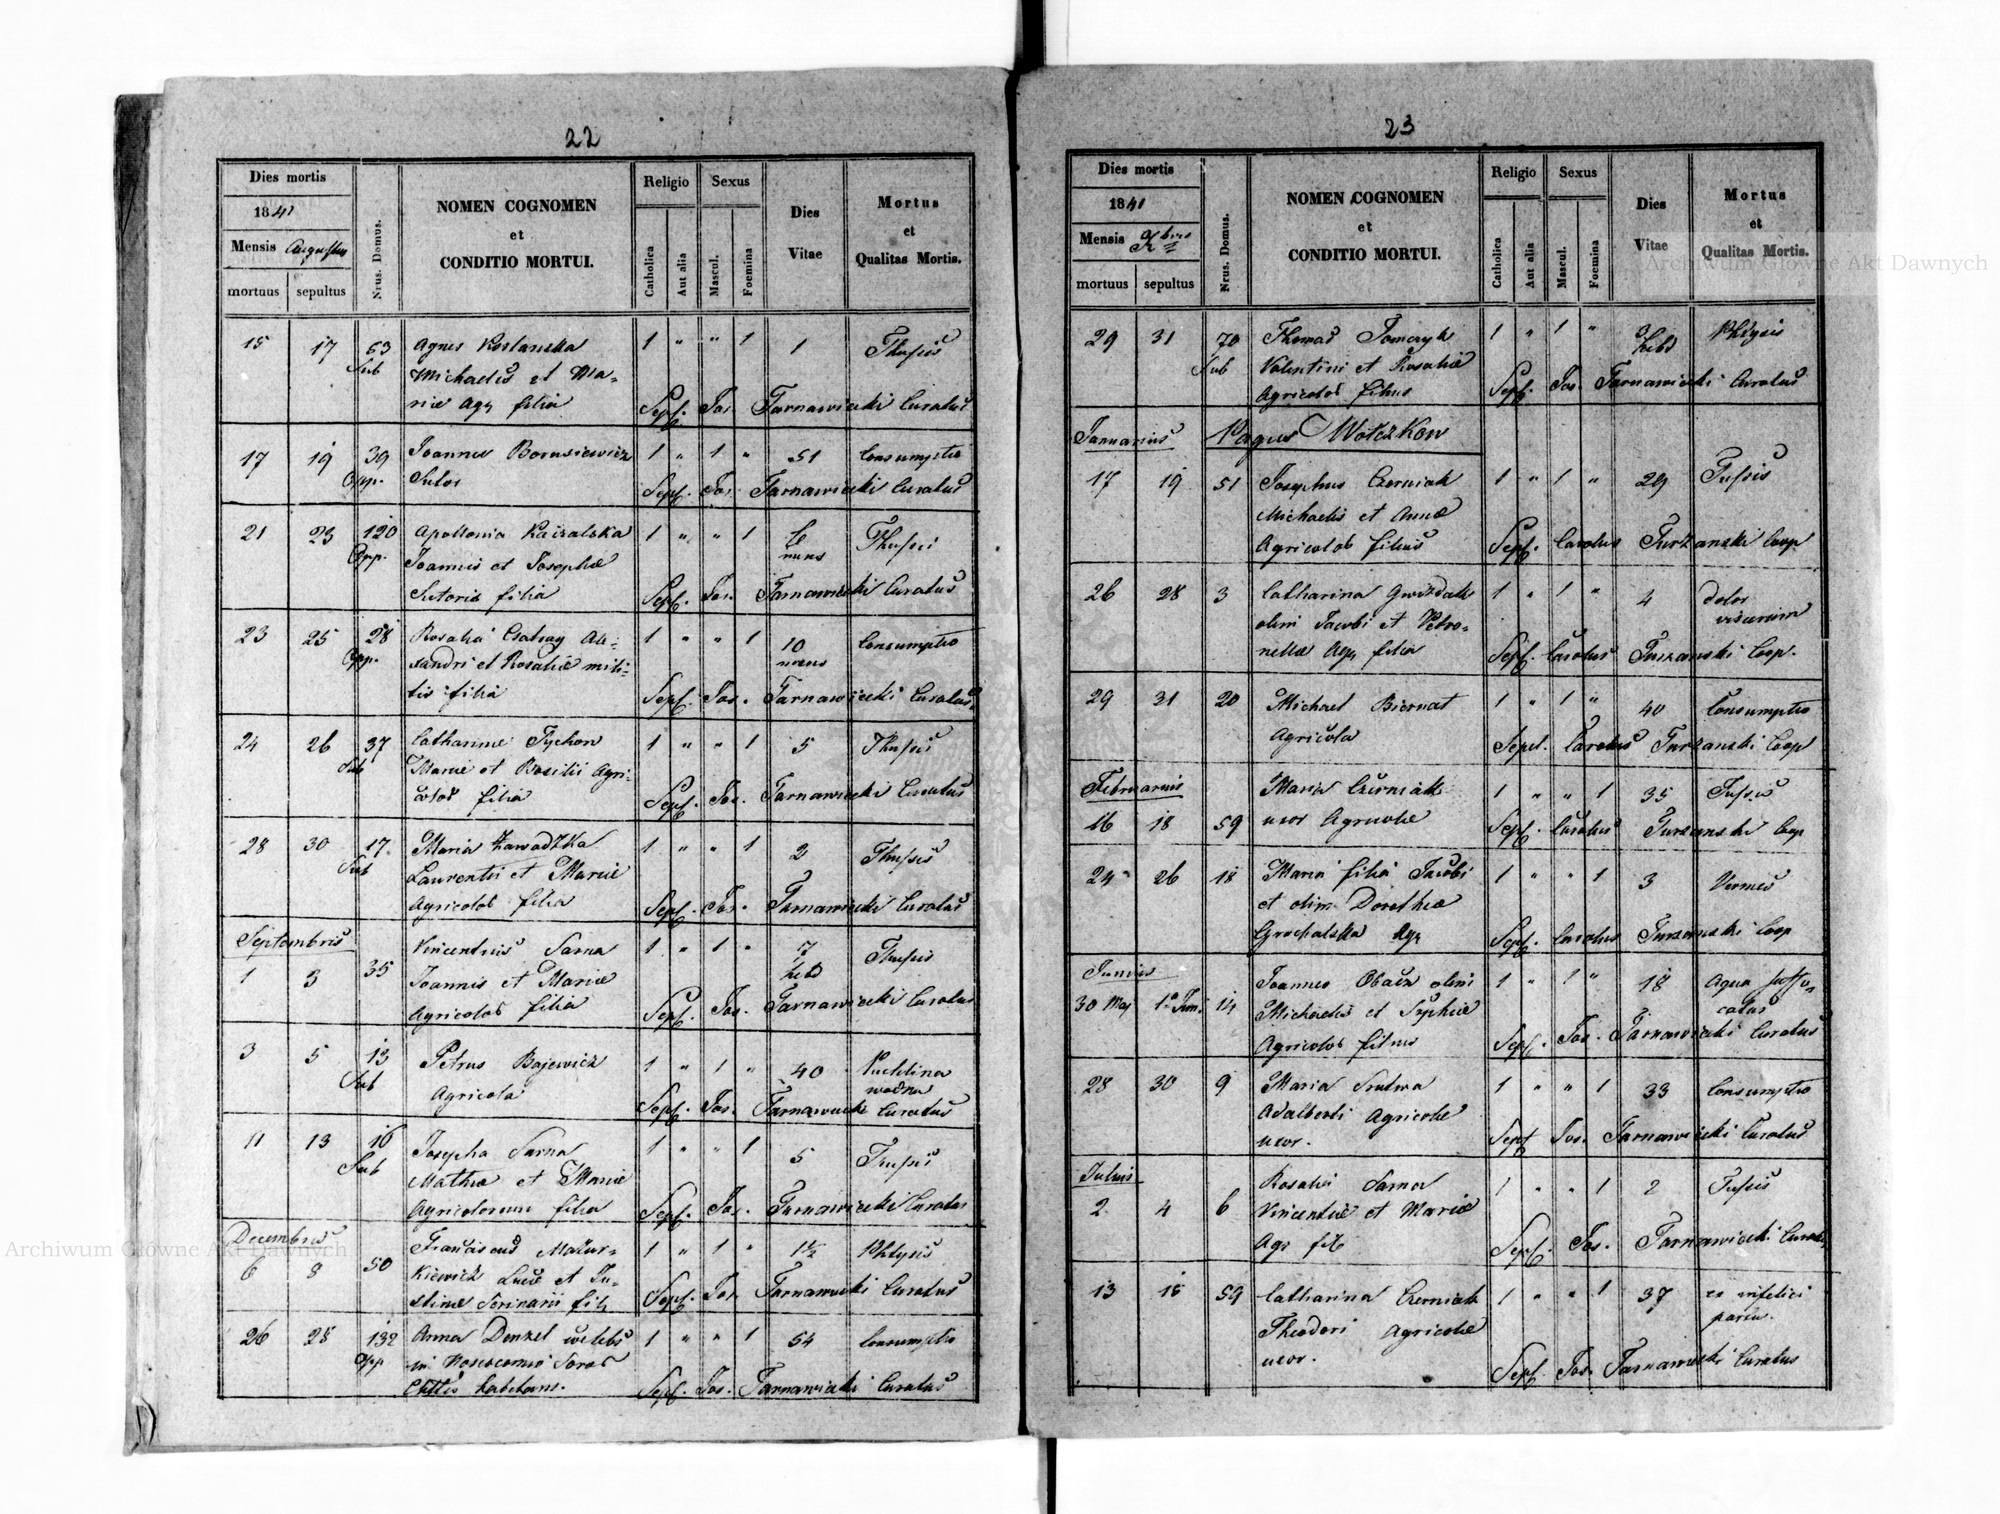 22
Dies mortis
1841
Mensis Augustus
mortuus sepultus
Nrus. Domus.
NOMEN COGNOMEN
et
CONDITIO MORTUI.
Religio
Catholica
Aut alia
Sexus
Mascul.
Foemina
Dies
Vitae
Mortus
et
Qualitas Mortis.
15 17 63 Agnes 1 " " 1 1 Thussis
Sub Michaelis et Ma-
riae Agr filia Sepl. Jos. Tarnawiecki Curatus
17 19 39 Joannes 1 " 1 " 51 Consumptio
Opp. Sutor Sepl. Jos. Tarnawiecki Curatus
21 23 120 Apollonia 1 " " 1
Opp. Joannis et Josephae
Sutoris filia Sepl. Jos. Tarnawiecki Curatus
23 25 28 Rosalia 1 " " 1 10 Consumptio
Opp. xandri et Rosaliae mili-
tis filia Sepl. Jos. Tarnawiecki Curatus
24 26 37 Catharina Tychon 1 " " 1 5 Thussis
Sub Mariae et Basilii Agri-
colae filia Sepl. Jos. Tarnawiecki Curatus
28 30 17 Maria Zawadzka 1 " " 1 Thussis
Sub Laurentii et Mariae
Agricolae filia Sepl. Jos. Tarnawiecki Curatus
Septembris Vincentius Sarna 1 " 1 " 7 Thussis
1 3 35 Joannis et Mariae hebd
Agricolae filia Sepl. Jos. Tarnawiecki Curatus
3 5 13 Petrus Bajewicz 1 " 1 " 40 Puchlina
Sub Agricola wodna
Sepl. Jos. Tarnawiecki Curatus
11 13 16 Josepha Sarna 1 " " 1 5 Thussis
Sub Mathiae et Mariae
Agricolarum filia Sepl. Jos. Tarnawiecki Curatus
Decembris Franciscus Mazur- 1 " 1 " 1½ Phtysis
6 8 50 kiewicz Lucae et Ju-
stinae fil Sepl. Jos. Tarnawiecki Curatus
26 28 132 Anna Denzel 1 " " 1 54 Consumptio
Opp in
Sepl. Jos. Tarnawiecki Curatus
23
Dies mortis
1841
Mensis Xbris
mortuus sepultus
Nrus. Domus.
NOMEN COGNOMEN
et
CONDITIO MORTUI.
Religio
Catholica
Aut alia
Sexus
Mascul.
Foemina
Dies
Vitae
Mortus
et
Qualitas Mortis.
29 31 70 Thomas Tomczyk 1 " 1 " 3 Phtysis
Sub Valentini et Rosaliae hebd
Agricolae filius Sepl. Jos. Tarnawiecki Curatus
Januarius Pagus Wołczkow
17 19 51 Josephus Czerniak 1 " 1 " 29 Tussis
Michaelis et Annae
Agricolae filius Sepl. Carolus Turzanski Coop
26 28 3 Catharina Gwizdak 1 " 1 " 4 dolor
olim Jacobi et Petro- viscerum
nellae Agr filia Sepl. Carolus Turzanski Coop.
29 31 20 Michael Biernat 1 " 1 " 40 Consumptio
Agricola Sepel. Carolus Turzanski Coop
Februarius Maria Czerniak 1 " " 1 35 Tussis
16 18 59 uxor Agricolae Sepl. Carolus Turzanski Coop
24 26 18 Maria filia Jacobi 1 " " 1 3 Vermes
et olim Dorotheae
Grochalska Agr Sepl. Carolus Turzanski Coop
Junius Joannes olim 1 " 1 " 18 Aqua suffo-
30 Maj 1a Juni 14 Michaelis et Sophiae catus
Agricolae filius Sepl. Jos. Tarnawiecki Curatus
28 30 9 Maria 1 " " 1 33 Consumptio
Adalberti Agricolae
uxor. Sepl Jos. Tarnawiecki Curatus
Julius Rosalia Sarna 1 " " 1 2 Tussis
2 4 6 Vincentii et Mariae
Agr fil Sepl. Jos. Tarnawiecki Curatus
13 15 59 Catharina Czerniak 1 " " 1 37 ex infelici
Theodori Agricolae partu.
uxor. Sepl. Jos. Tarnawiecki Curatus
Archiwum Główne Akt Dawnych
Archiwum Główne Akt Dawnych